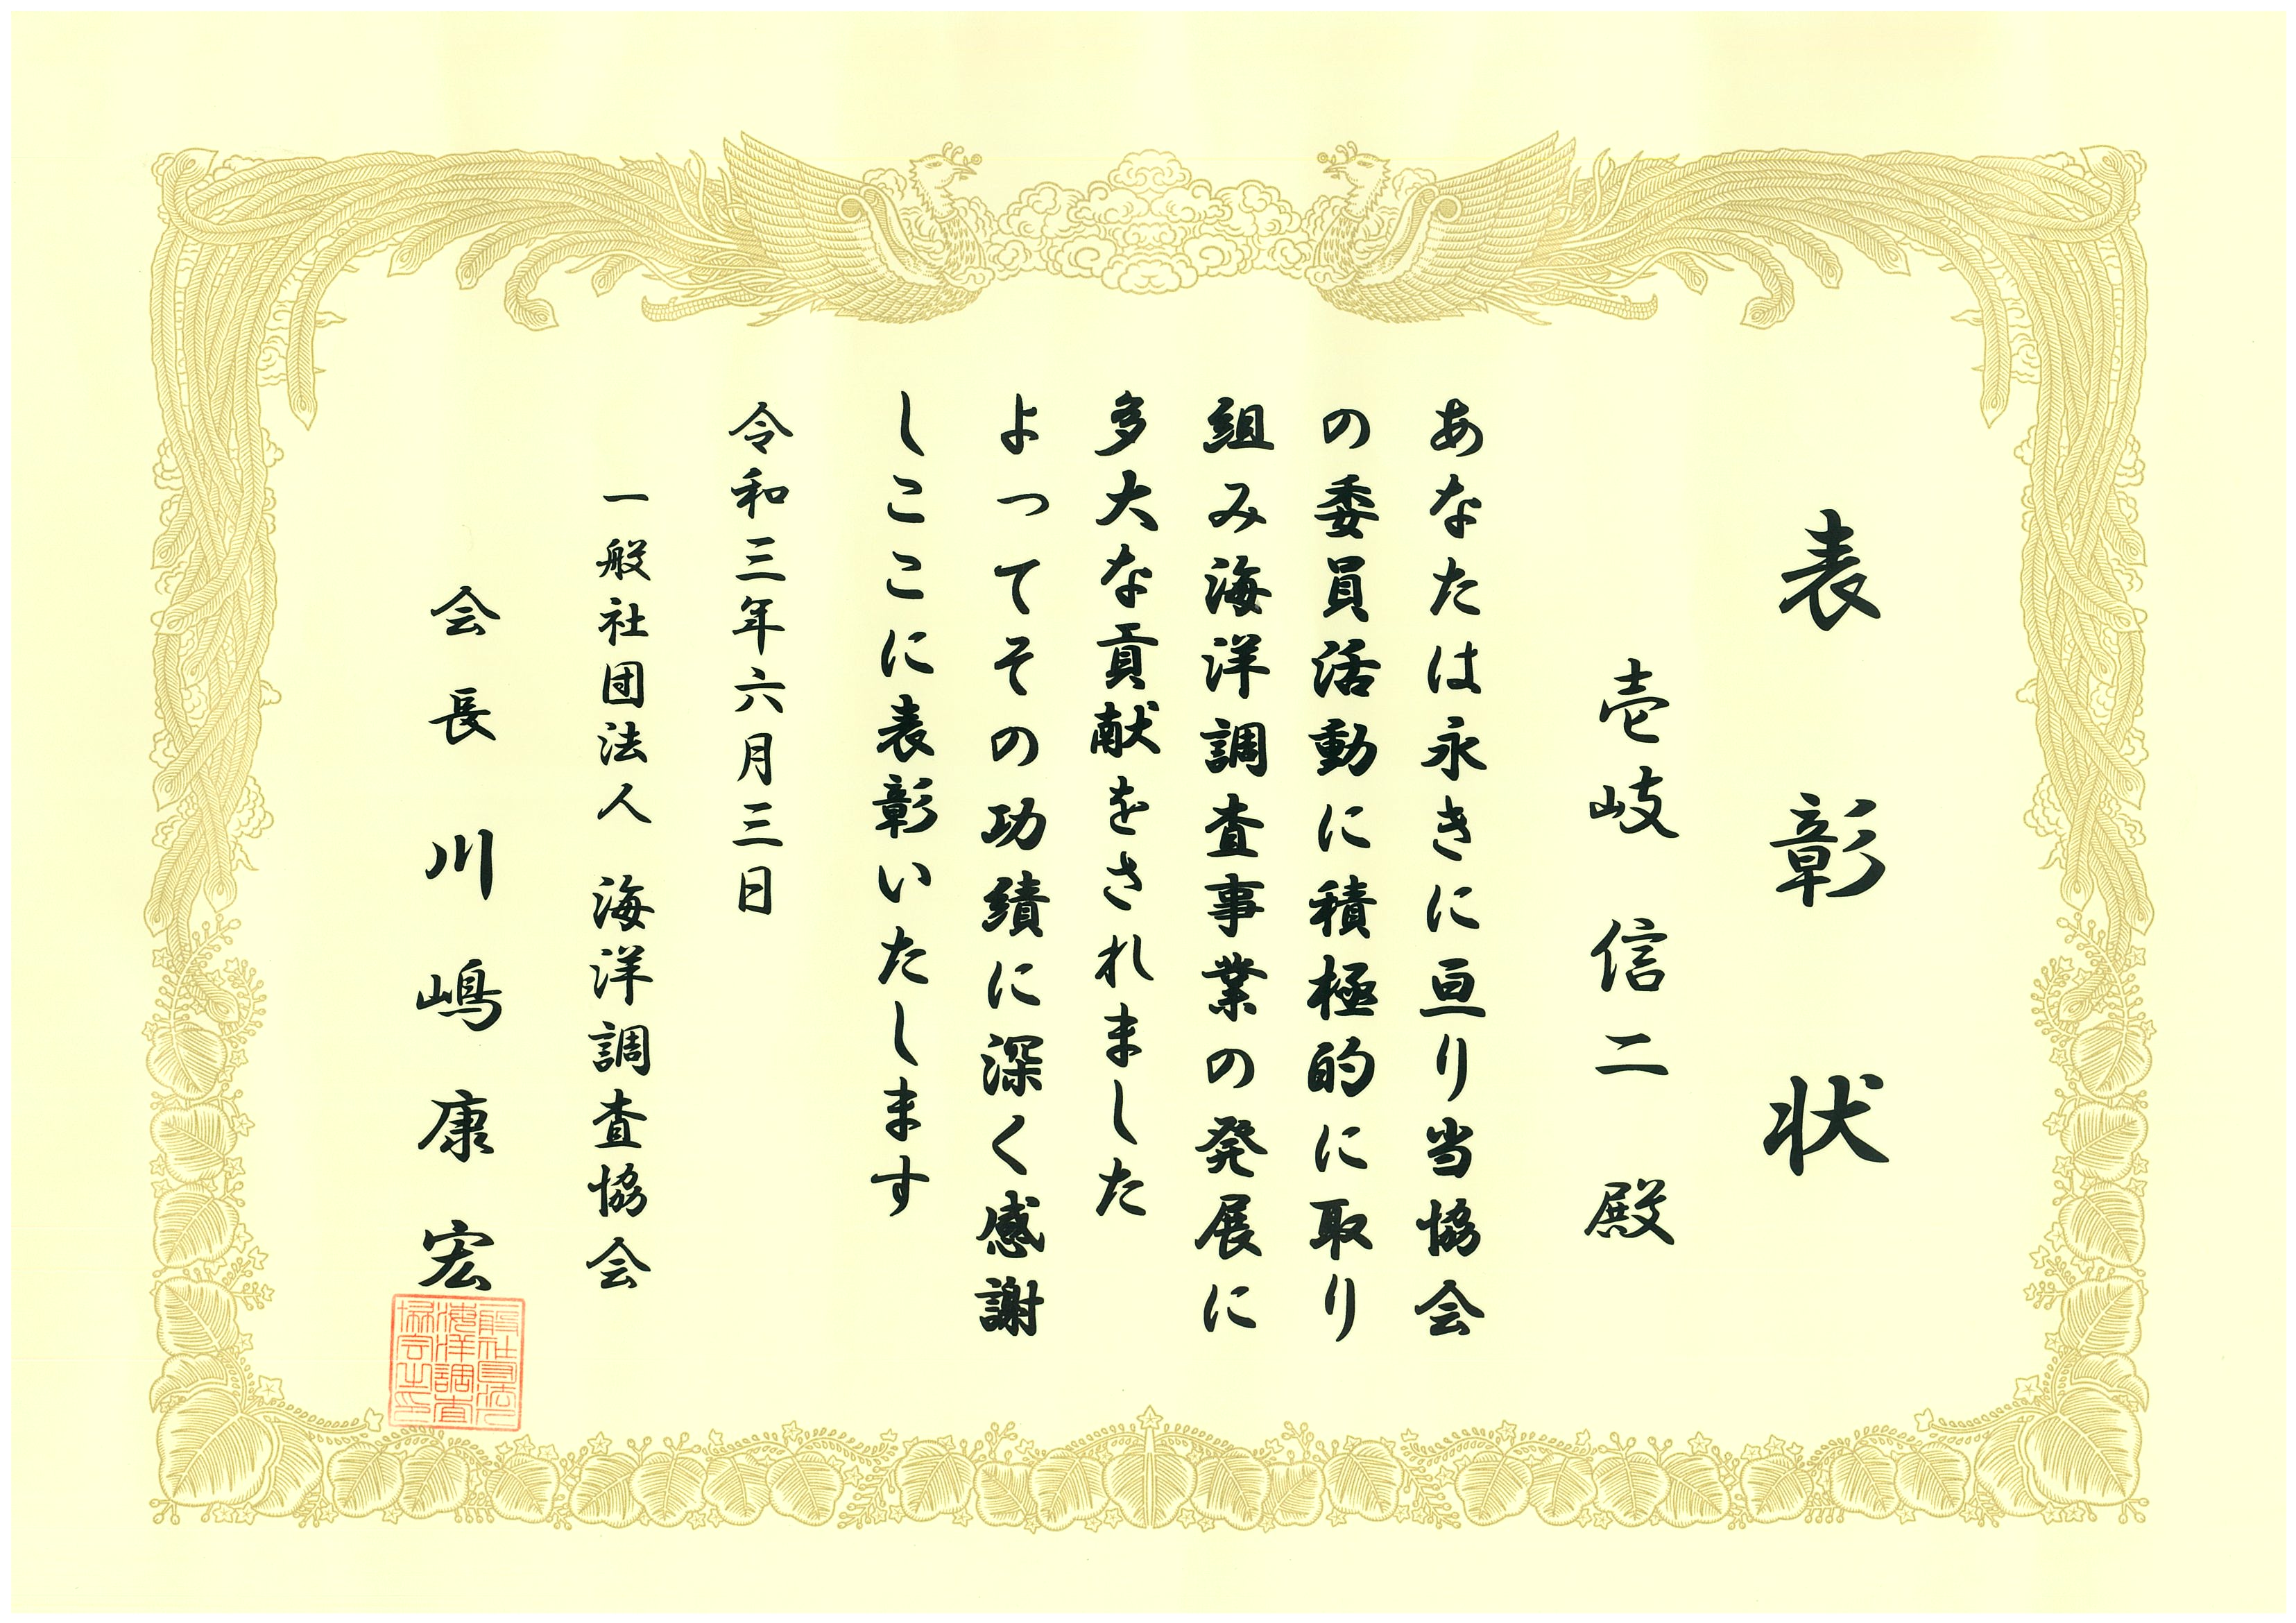 表彰状
壱岐信二殿
あなたは永きに亘り当協会
の委員活動に積極的に取り
組み海洋調査事業の発展に
多大な貢献をされました
よってその功績に深く感謝
しここに表彰いたします
令和三年六月三日
一般社団法人 海洋調査協会
会長 川嶋康宏